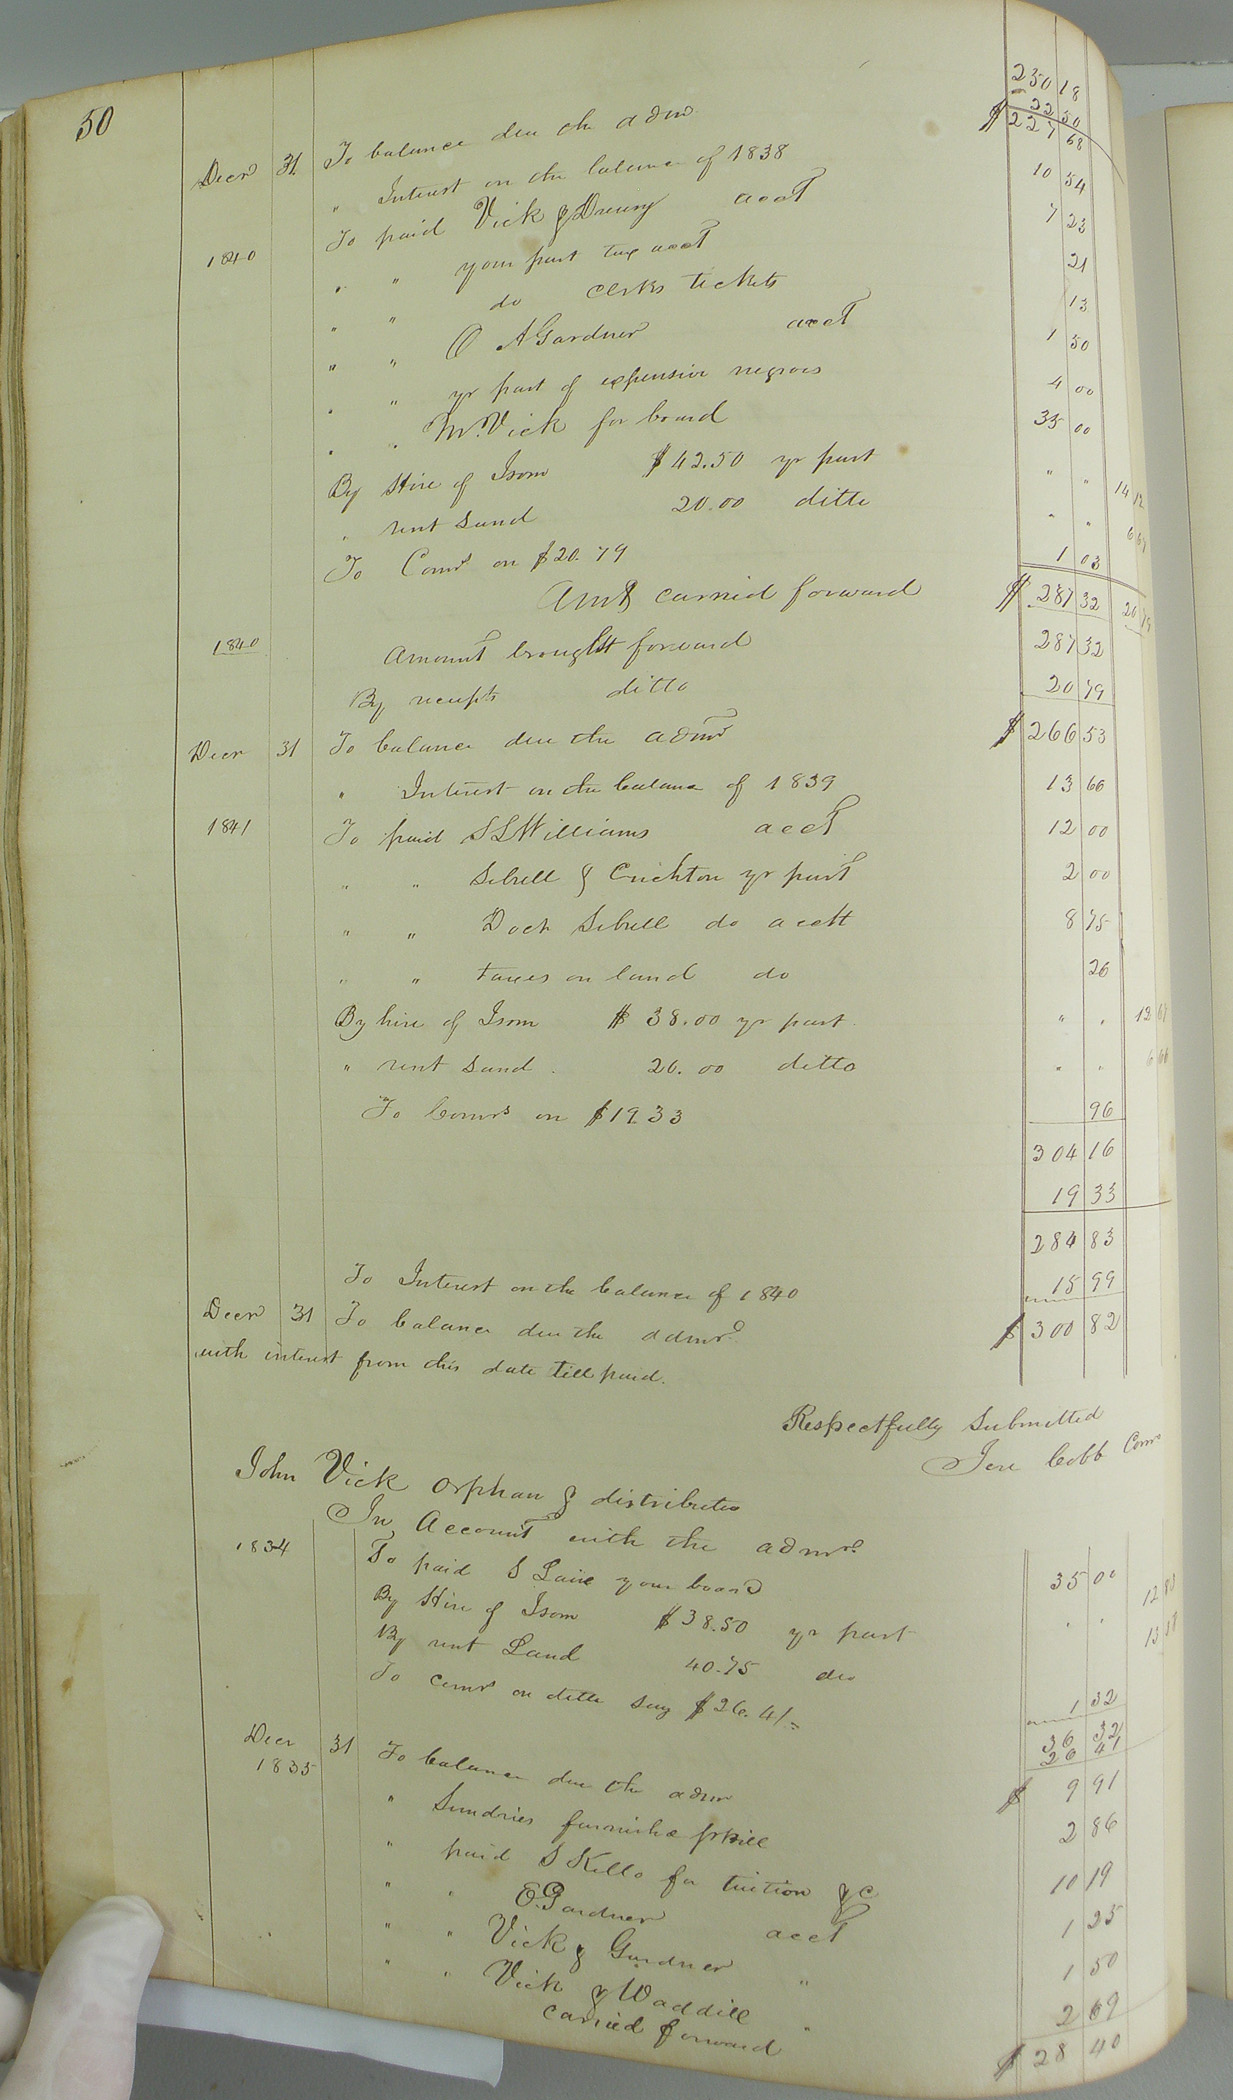 50
250 18
22 50
Decr 31 To balance due the admr $ 227 68
" Interest on the balance of 1838 10 54
1840 To paid Vick & Drewry acct 7 23
" " your part tax acct 21
" " do Clerks tickets 13
" " O A Gardner acct 1 50
" " yr part of expensive negroes 4 00
" " M. Vick for board 35 00
By Hire of Isom $42.50 yr part " " 14 12
" rent Land 20.00 ditto " " 6 67
To Comrs on $20.79 1 03
Amt carried forward $ 287 32 20 79
1840 Amount brought forward 287 32
By receipts ditto 20 79
Decr 31 To balance due the admr $ 266 53
" Interest on the balance of 1839 13 66
1841 To paid S L Williams acct 12 00
" " Sebrell & Crichton yr part 2 00
" " Doct Sebrell do acctt 8 75
" " taxes on land do 26
By hire of Isom $ 38.00 yr part " " 12 67
" rent Land 20.00 ditto " " 6 66
To Comrs on $19.33 96
304 16
19 33
284 83
To Interest on the balance of 1840 15 99
Decr 31 To balance due the admr $ 300 82
with interest from this date till paid.
Respectfully Submitted
Jere Cobb Comr
John Vick orphan & distributee
In Account with the admr
1834 To paid S Laine your board 35 00
By Hire of Isom $38.50 yr part " " 12 83
By rent Land 40.75 do 13 58
To comrs on ditto say $26.41 1 32
36 32
26 41
Decr 31 To balance due the admr $ 9 91
1835 " Sundries furnished pr bill 2 86
" paid S Kello for tuition &c 10 19
" " E. Gardner acct 1 25
" " Vick & Gardner " 1 50
" " Vick & Waddill " 2 69
carried forward $ 28 40